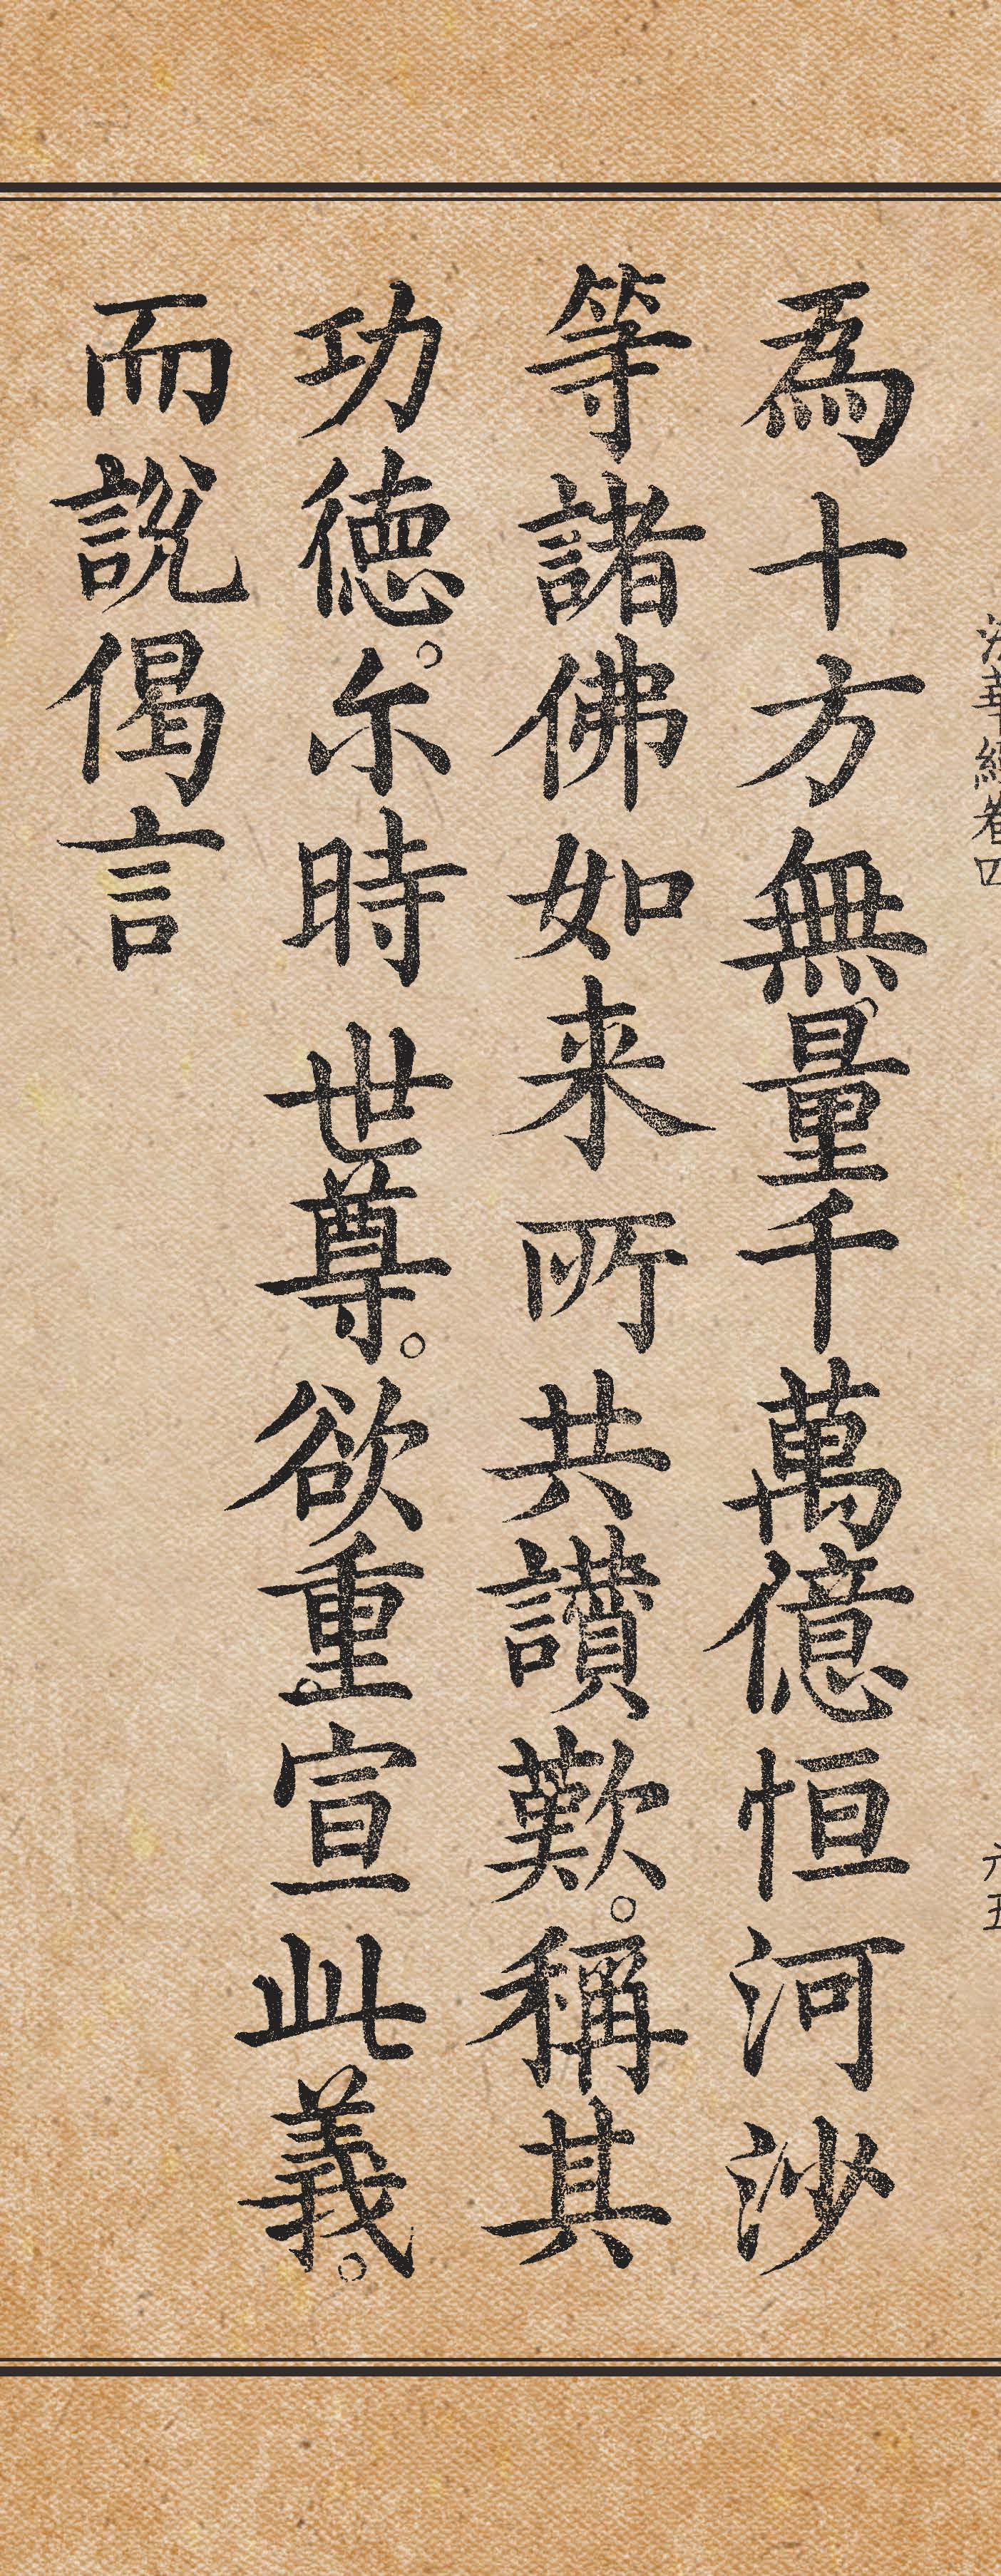 法華經卷四
六五
為十方無量千萬億恒河沙
等諸佛如来所共讃歎。稱其
功徳。尓時世尊。欲重宣此義。
而說偈言